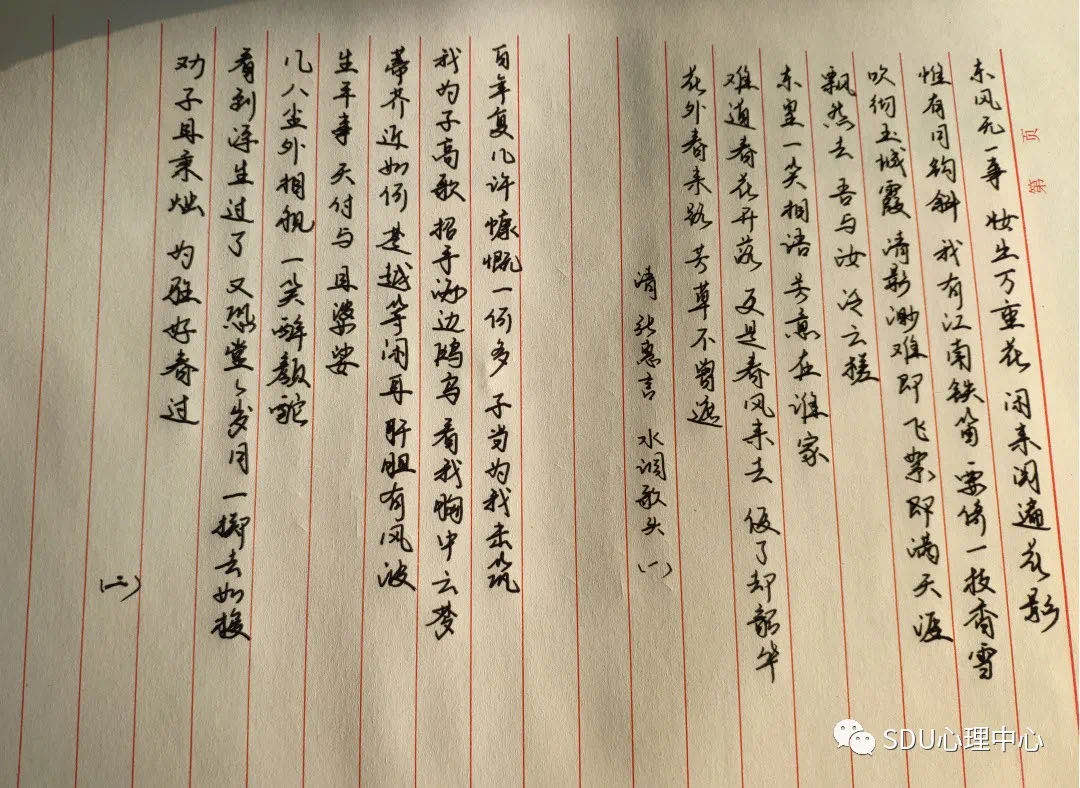 第 页
东风无一事 妆生万重花 闲来阅遍花影
惟有月钩斜 我有江南铁笛 要倚一枝香雪
吹彻玉城霞 清影渺难即 飞絮即满天涯
飘然去 吾与汝 泛云槎
东皇一笑相语 芳意在谁家
难道春花开落 更是春风来去 便了却韶华
花外春来路 芳草不曾遮
清 张惠言 水调歌头 (一)
百年复几许 慷慨一何多 子当为我击筑
我为子高歌 招手海边鸥鸟 看我胸中云梦
蒂芥近如何 楚越等闲耳 肝胆有风波
生平事 天付与 且婆娑
几人尘外相视 一笑醉颜酡
看到浮生过了 又恐堂々岁月 一掷去如梭
劝子且秉烛 为驻好春过
(二)
SDU心理中心